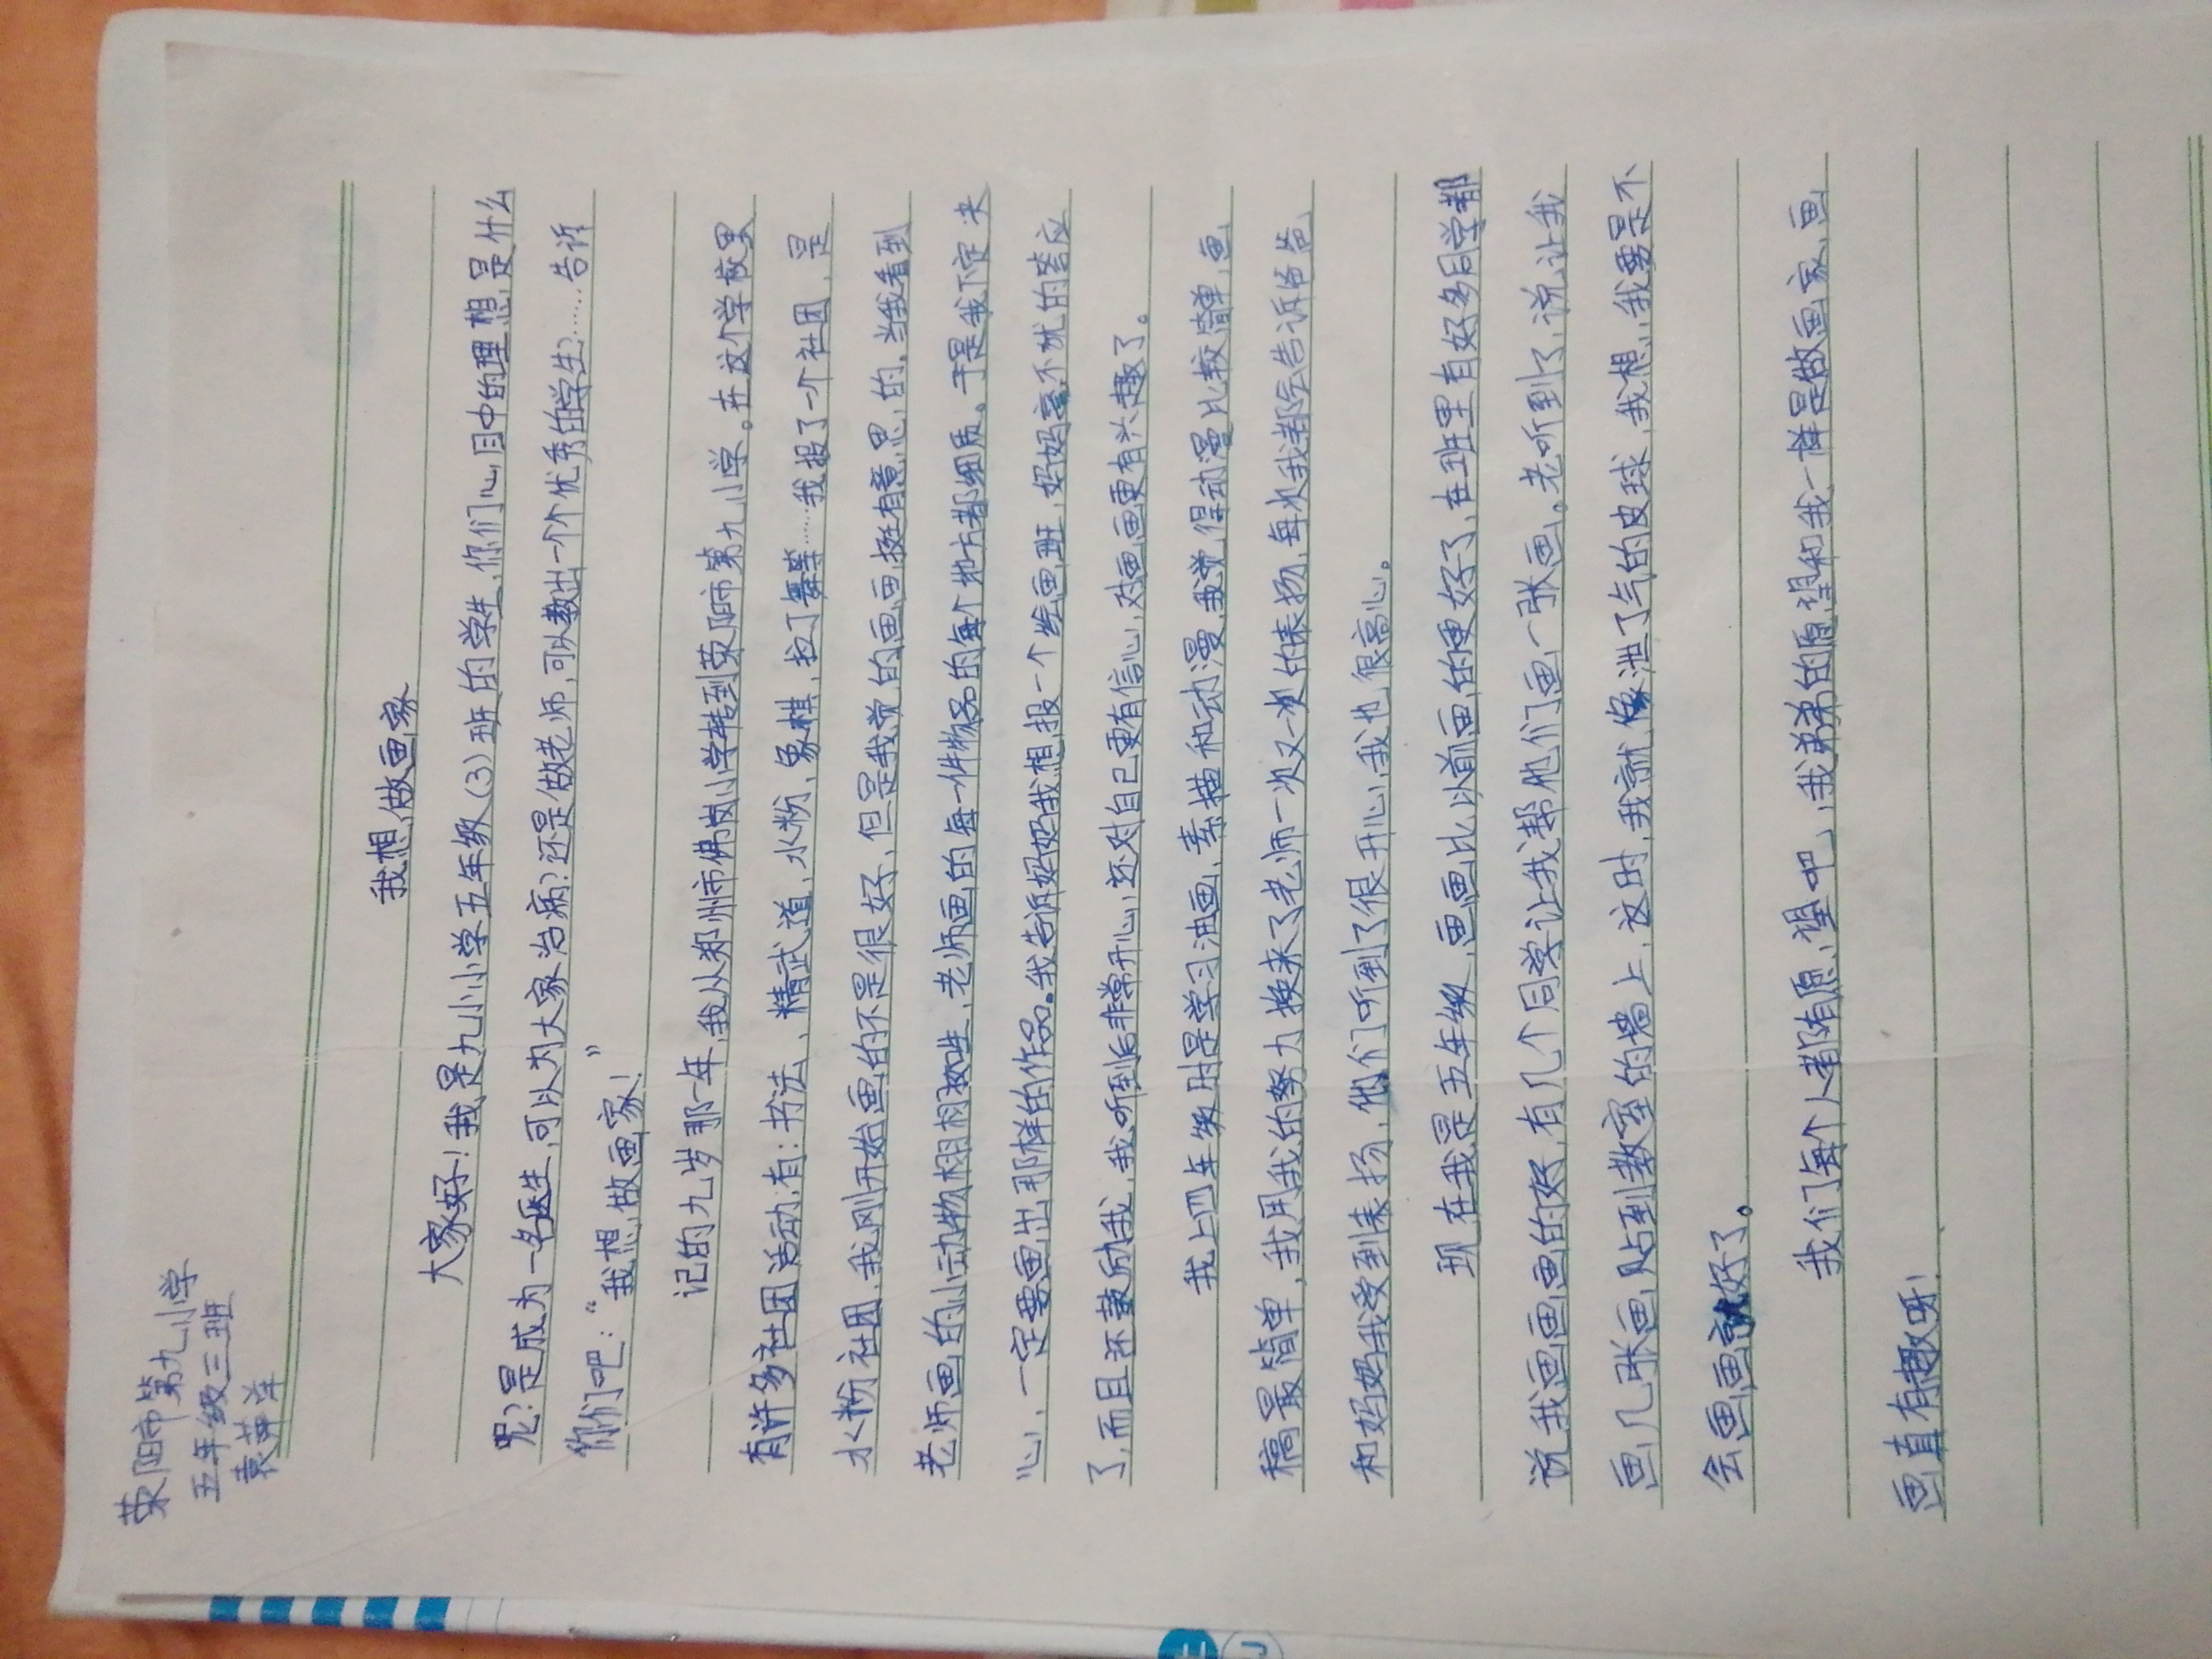 荥阳市第九小学
五年级三班
袁苹洋
我想做画家
大家好！我是九小小学五年级(3)班的学生,你们心目中的理想是什么
呢？是成为一名医生,可以为大家治病？还是做老师,可以教出一个个优秀的学生？……告诉
你们吧：“我想做画家！”
记的九岁那一年,我从郑州市佛岗小学转到荥阳市第九小学。在这个学校里
有许多社团活动,有：书法、精武道、水粉、象棋、拉丁舞等……我报了一个社团,是
水粉社团,我刚开始画的不是很好,但是我觉的画画挺有意思的,当我看到
老师画的小动物栩栩如生,老师画的每一件物品的每个地方都细质。于是我下定决
心,一定要画出那样的作品。我告诉妈妈我想报一个绘画班,妈妈毫不犹的答应
了,而且还鼓励我,我听到后非常开心,还对自己更有信心,对画画更有兴趣了。
我上四年级时是学习油画,素描和动漫,我觉得动漫比较简单,画
稿最简单,我用我的努力换来了老师一次又一次的表扬,每次我都会告诉爸爸
和妈妈我受到表扬,他们听到了很开心,我也很高心。
现在我是五年级,画画比以前画的更好了,在班里有好多同学都
说我画画画的好,有几个同学让我帮他们画一张画。老听到了,说让我
画几张画,贴到教室的墙上,这时,我就像泄了气的皮球,我想,我要是不
会画画就好了。
我们每个人都有原望吧,我弟弟的原望和我一样是做画家,画
画真有趣呀！